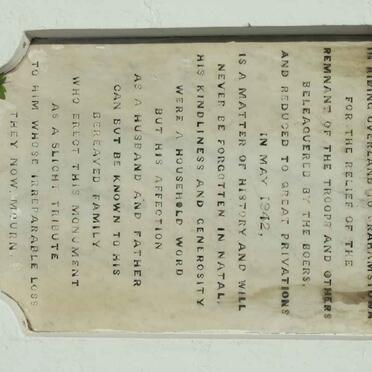 IN RIDING OVERLAND TO GRAHAMSTOWN
FOR THE RELIEF OF THE
REMNANT OF THE TROOPS AND OTHERS
BELEAGUERED BY THE BOERS,
AND REDUCED TO GREAT PRIVATIONS
IN MAY 1842,
IS A MATTER OF HISTORY AND WILL
NEVER BE FORGOTTEN IN NATAL,
HIS KINDLINESS AND GENEROSITY
WERE A HOUSEHOLD WORD
BUT HIS AFFECTION
AS A HUSBAND AND FATHER
CAN BUT BE KNOWN TO HIS
BEREAVED FAMILY
WHO ERECT THIS MONUMENT
AS A SLIGHT TRIBUTE
TO HIM WHOSE IRREPARABLE LOSS
THEY NOW MOURN